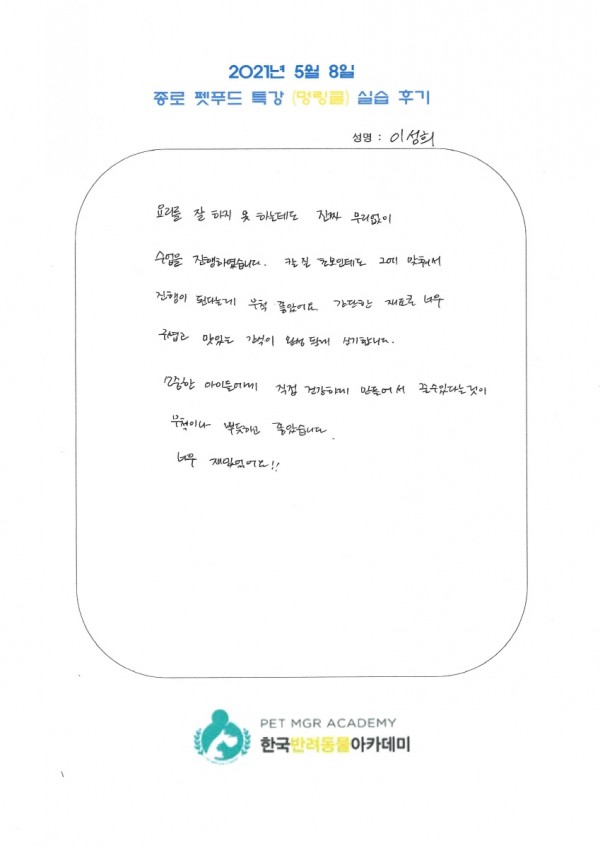 2021년 5월 8일
종로 펫푸드 특강 (멍링콜) 실습 후기
성명 : 이성희
요리를 잘 하지 못 하는데도 진짜 무리없이
수업을 진행하였습니다. 칼질 초보인데도 그에 맞춰서
진행이 된다는게 무척 좋았어요. 간단한 재료로 너무
귀엽고 맛있는 간식이 완성 되서 신기합니다.
소중한 아이들에게 직접 건강하게 만들어서 줄수있다는것이
무척이나 뿌듯하고 좋았습니다.
너무 재밌었어요!!
PET MGR ACADEMY
한국반려동물아카데미